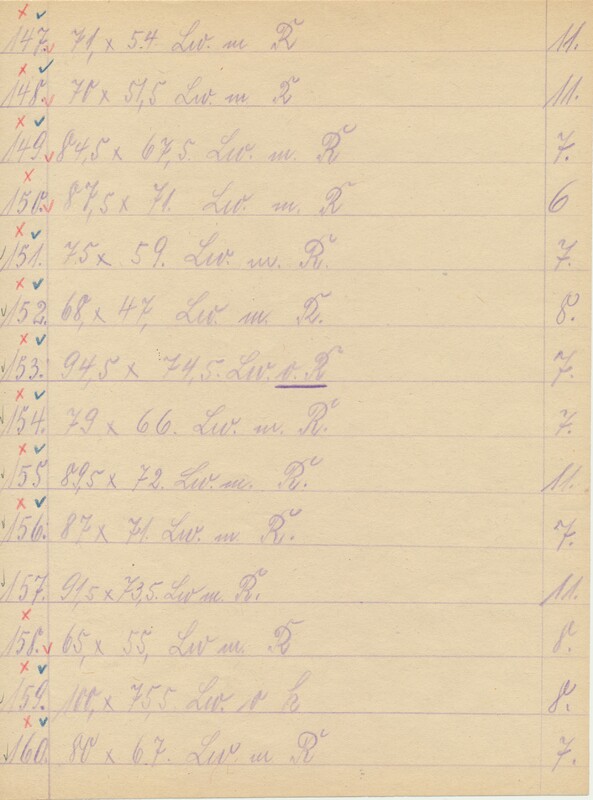 147. 71, x 54. Lw. m R 11.
148. 70 x 51,5 Lw. m. R 11.
149. 84,5 x 67,5. Lw. m. R 7.
150. 87,5 x 71. Lw. m. R 6
151. 75 x 59. Lw. m. R. 7.
152. 68, x 47, Lw. m. R. 8.
153. 94,5 x 74,5. Lw. o. R 7.
154. 79 x 66. Lw. m. R. 7.
155 89,5 x 72. Lw. m. R. 11.
156. 87 x 71. Lw. m. R. 7.
157. 91,5 x 73,5. Lw m R. 11.
158. 65, x 55, Lw m. R 8.
159. 100, x 75,5. Lw. o R 8.
160. 80 x 67. Lw. m R 7.